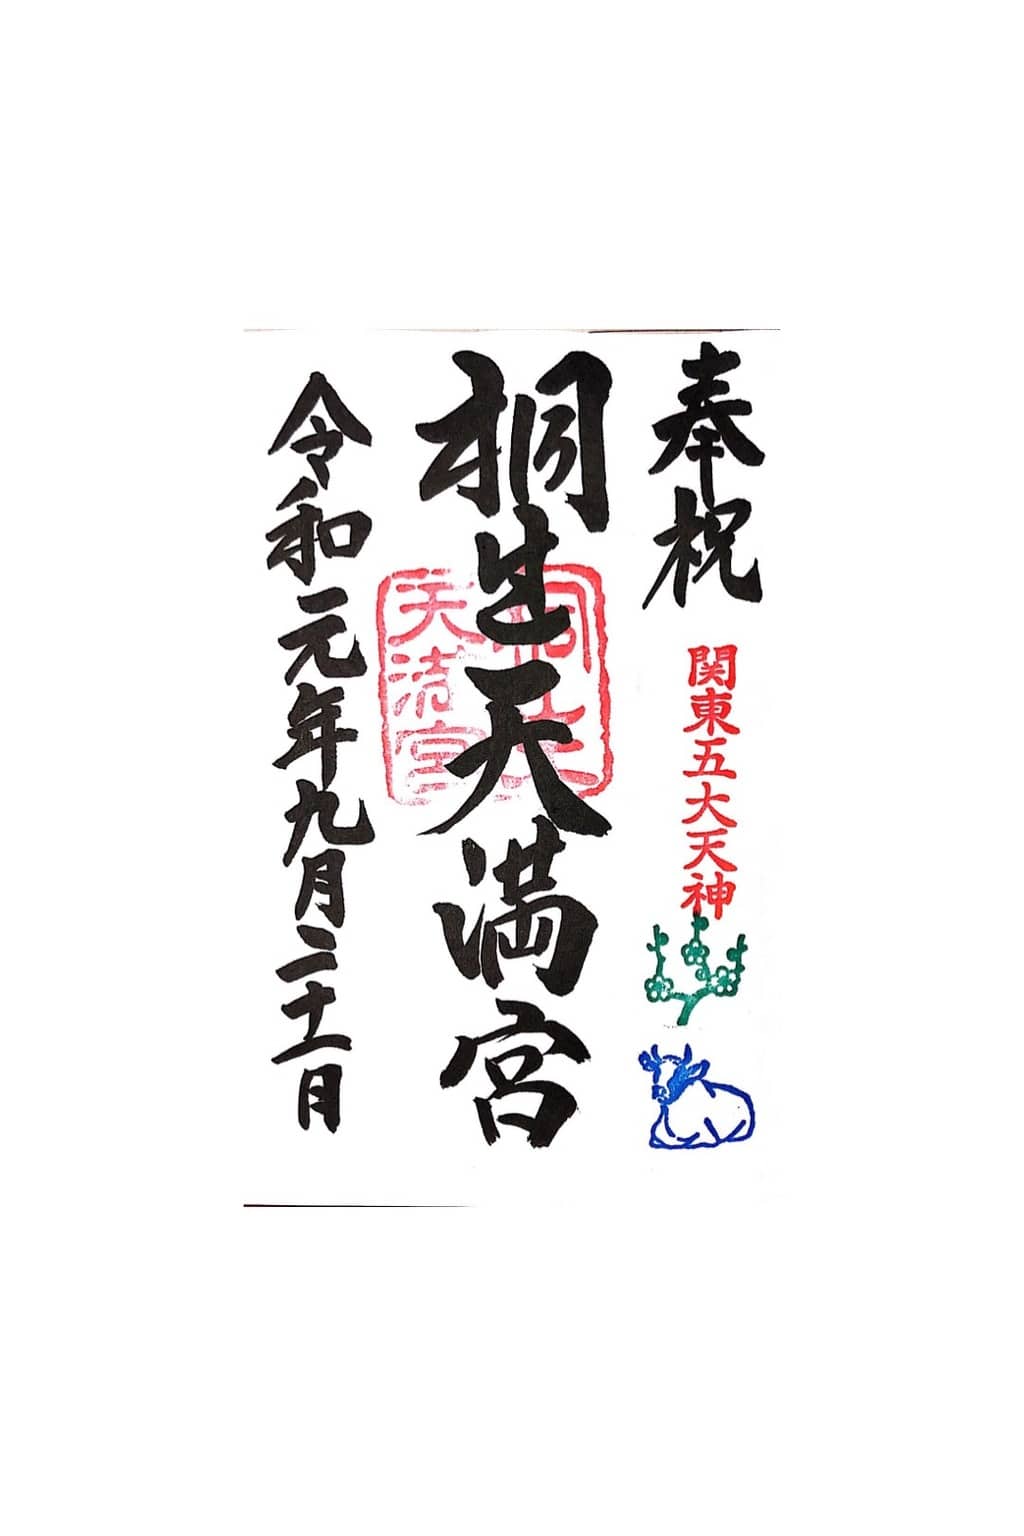 奉祝
関東五大天神
桐生天満宮
桐生
天満宮
令和元年九月二十一日